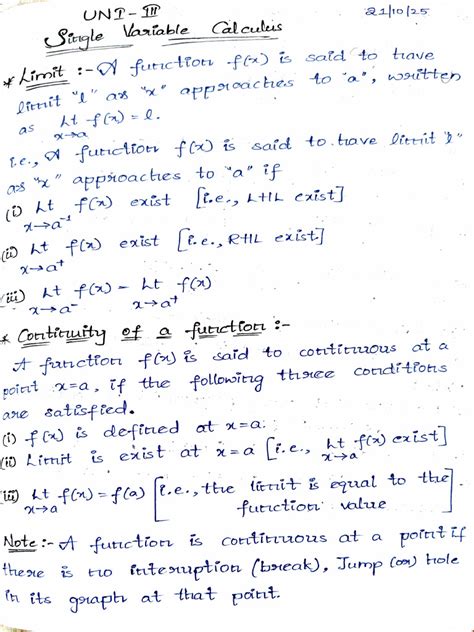 UNIT-III
21/10/25
Single Variable Calculus
* Limit :- A function f(x) is said to have
limit "l" as "x" approaches to "a", written
as Lt f(x) = l.
x→a
i.e., A function f(x) is said to have limit "l"
as "x" approaches to "a" if
(i) Lt f(x) exist [i.e., LHL exist]
x→a⁻
(ii) Lt f(x) exist [i.e., RHL exist]
x→a⁺
(iii) Lt f(x) = Lt f(x)
x→a⁻ x→a⁺
* Continuity of a function :-
A function f(x) is said to continuous at a
point x=a, if the following three conditions
are satisfied.
(i) f(x) is defined at x=a.
(ii) Limit is exist at x=a [i.e., Lt f(x) exist]
x→a
(iii) Lt f(x) = f(a) [i.e., the limit is equal to the
x→a function value]
Note :- A function is continuous at a point if
there is no interruption (break), Jump (or) hole
in its graph at that point.